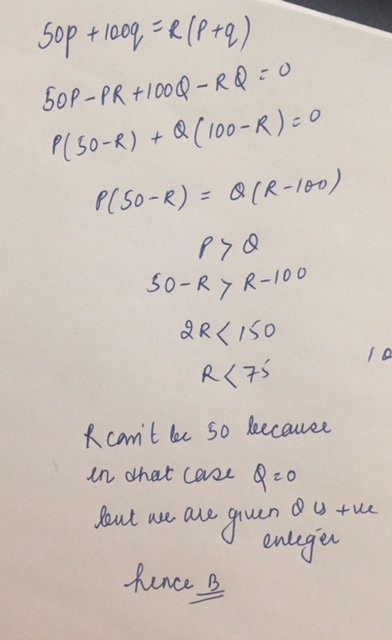 50p + 100q = R(P+q)
50P - PR + 100Q - RQ = 0
P(50-R) + Q(100-R) = 0
P(50-R) = Q(R-100)
P > Q
50-R > R-100
2R < 150
R < 75
R can't be 50 because
in that case Q=0
but we are given Q is +ve
enteger
hence B